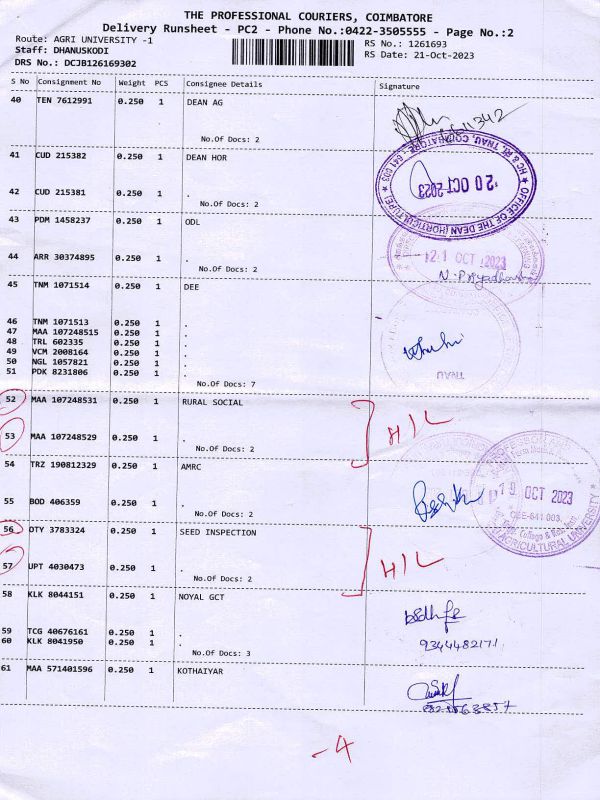 THE PROFESSIONAL COURIERS, COIMBATORE
Delivery Runsheet - PC2 - Phone No.:0422-3505555 - Page No.:2
Route: AGRI UNIVERSITY -1
RS No.: 1261693
Staff: DHANUSKODI
RS Date: 21-Oct-2023
DRS No.: DCJB126169302
S No Consignment No Weight PCS Consignee Details Signature
40 TEN 7612991 0.250 1 DEAN AG
No.Of Docs: 2
41 CUD 215382 0.250 1 DEAN HOR
42 CUD 215381 0.250 1 .
No.Of Docs: 2
20 OCT 2023
OFFICE OF THE DEAN (HORTICULTURE)
HC & RI, TNAU, COIMBATORE - 641 003
43 PDM 1458237 0.250 1 ODL
44 ARR 30374895 0.250 1 .
No.Of Docs: 2
21 OCT 2023
45 TNM 1071514 0.250 1 DEE
46 TNM 1071513 0.250 1 .
47 MAA 107248515 0.250 1 .
48 TRL 602335 0.250 1 .
49 VCM 2008164 0.250 1 .
50 NGL 1057821 0.250 1 .
51 PDK 8231806 0.250 1 .
No.Of Docs: 7
TNAU
52 MAA 107248531 0.250 1 RURAL SOCIAL
53 MAA 107248529 0.250 1 .
No.Of Docs: 2
H/L
54 TRZ 190812329 0.250 1 AMRC
55 BOD 406359 0.250 1 .
No.Of Docs: 2
19 OCT 2023
CBE-641 003
AGRICULTURAL UNIVERSITY
56 OTY 3783324 0.250 1 SEED INSPECTION
57 UPT 4030473 0.250 1 .
No.Of Docs: 2
H/L
58 KLK 8044151 0.250 1 NOYAL GCT
59 TCG 40676161 0.250 1 .
60 KLK 8041950 0.250 1 .
No.Of Docs: 3
9344482171
61 MAA 571401596 0.250 1 KOTHAIYAR
-4